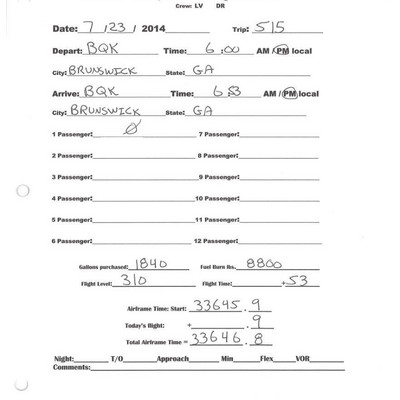 Crew: LV DR
Date: 7 / 23 / 2014 Trip: 515
Depart: BQK Time: 6:00 AM / PM local
City: BRUNSWICK State: GA
Arrive: BQK Time: 6:53 AM / PM local
City: BRUNSWICK State: GA
1 Passenger: Ø 7 Passenger:
2 Passenger: 8 Passenger:
3 Passenger: 9 Passenger:
4 Passenger: 10 Passenger:
5 Passenger: 11 Passenger:
6 Passenger: 12 Passenger:
Gallons purchased: 1840 Fuel Burn lbs. 8800
Flight Level: 310 Flight Time: +53
Airframe Time: Start: 33645.9
Today's flight: + .9
Total Airframe Time = 33646.8
Night: T/O Approach Min Flex VOR
Comments: